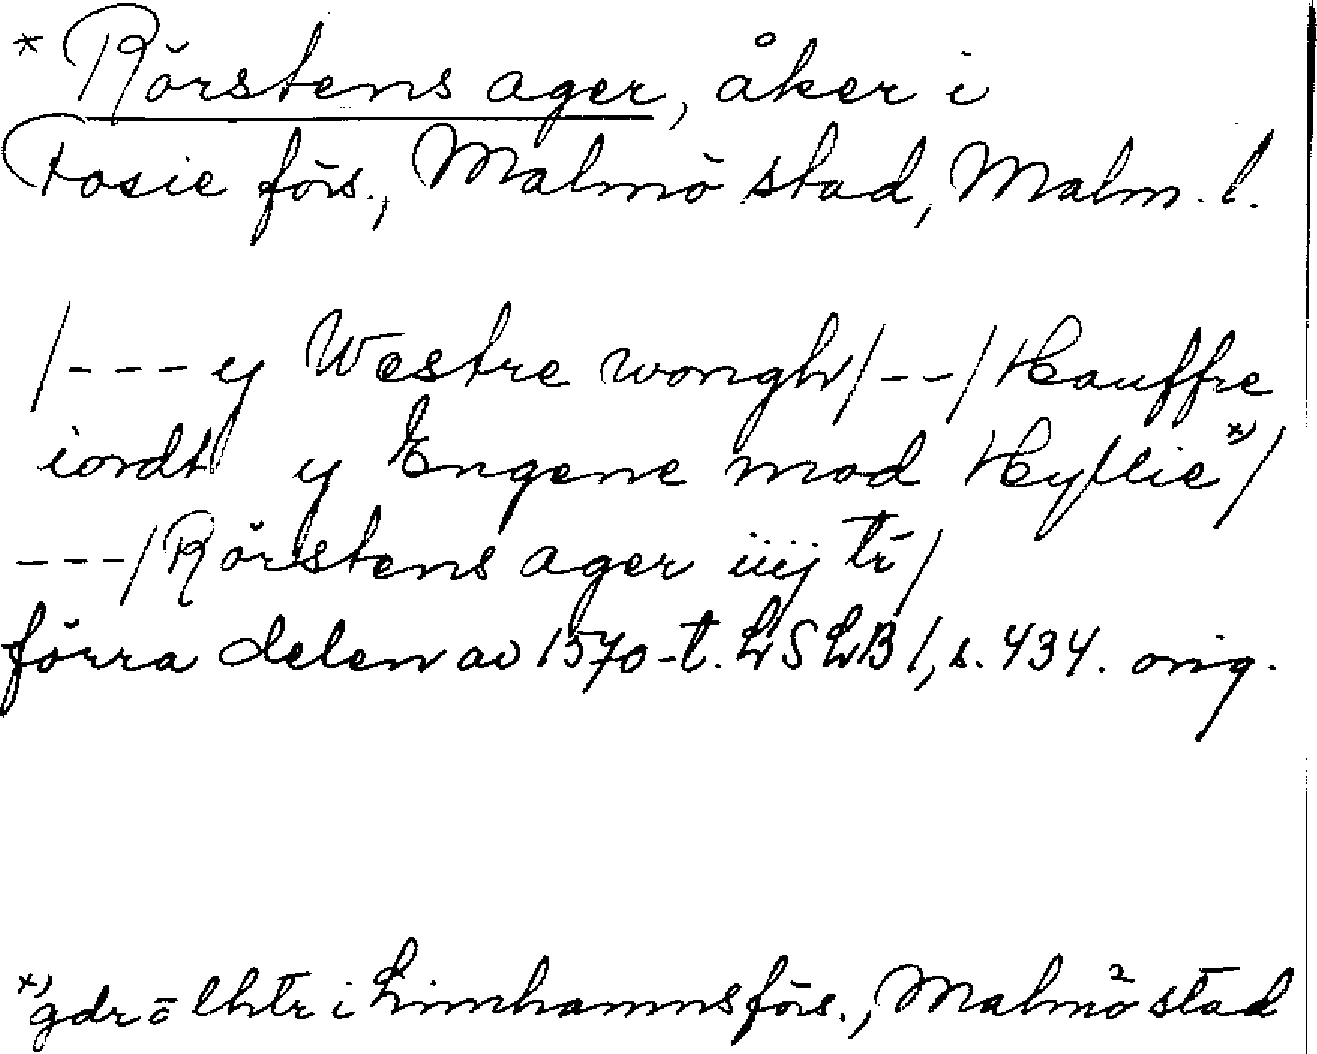 * Rörstens ager, åker i
Fosie förs., Malmö stad, Malm. l.
/--- y Westre wongh/--/Hauffre
iordt y Engene mod Hyllie*)/
---/Rörstens ager iiij tr/
förra delen av 1570-t. LSLB 1, s. 434. orig.
*) gdr o lhtr i Limhamns förs., Malmö stad